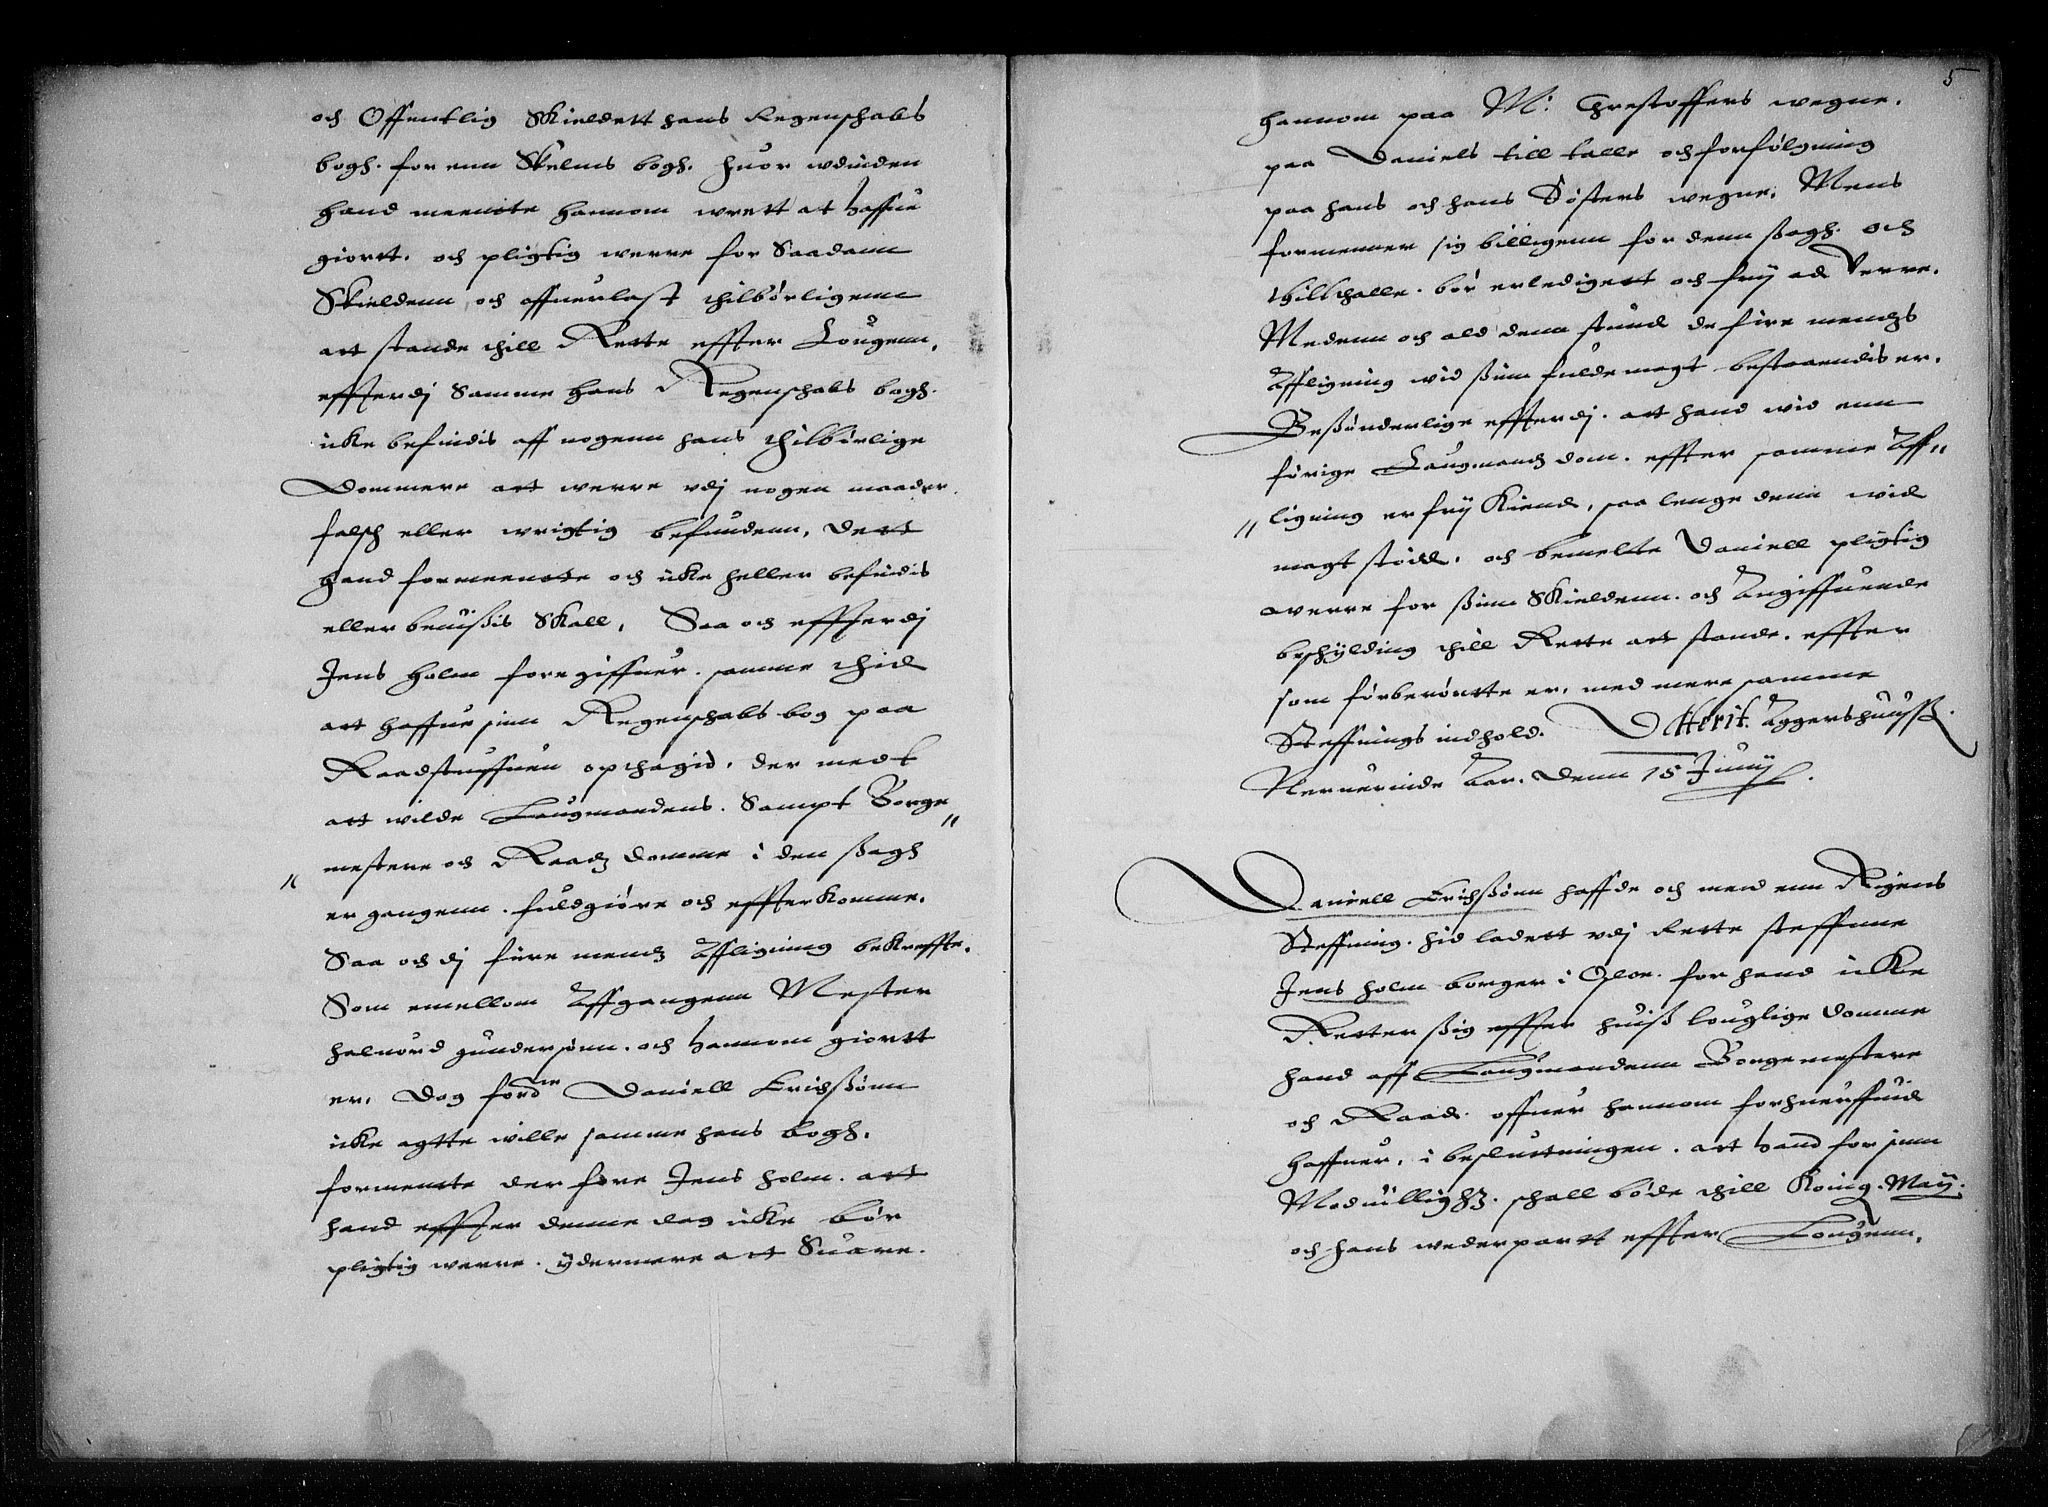 och Offentlig Skieldett hans Regenschabs
bogh. for enn Skelms bogh. huor wdinden
hand meente hannom wrett at haffue
giortt. och pligtig werre for Saadann
Skieldenn, och offuerlast thilbørligenn
att stande thill Rette effter Lougenn,
effterdj Samme hans Regenschabs bogh.
icke befindis aff nogenn hans thilbørlige
Dommere att werre vdj nogen maader
falsch eller wrigtig befundenn, dett
hand formeente och icke heller befindis
eller beuissis Skall, Saa och effterdj
Jens Holm foregiffuer. samme thid
att haffue sinn Regenschabs bog paa
Raadstuffuen opthagid. der medt
att wilde Laugmandens. Sampt Borge„
„ mestere och Raadz domme i den sagh
er gangenn. fuldgiøre och effterkomme.
Saa och dj fiire mendz Affligning bekreffte.
Som emellom Affgangenn Mester
Haluord gundersønn. och hannom giortt
er. Dog fordne Daniell Erichssønn
icke agtte wille samme hans bogh.
formentte der fore Jens Holm. att
hand effter denne dag icke bør
pligtig werre. ydermere att Suare.
5
hannom paa M: Chrestoffers wegne.
paa Daniels till talle och forfølgning
paa hans och hans Søsters wegne. Mens
formenner sig billigenn for denn sagh. och
thilthalle. bør erledigett och frij ad Verre.
Medenn och ald denn stund de fiire mendz
Affligning wid sinn fulde magt bestaaendis er.
Besønderlige effterdj. att hand wid enn
førige Laugmandz dom. effter samme Aff„
„ ligning er frij Kiend, saa lenge denn wid
magt stoed. och bemelte Daniell pligtig
werre for sinn Skieldenn. och Angiffuende
beschylding thill Rette att stande. effter
som førberørtte er, med mere samme
Steffnings indhold. Datterit. Aggershuuss.
Neruerinde Aar. Denn 15 Junij.
Daniell Erichssønn haffde och med enn Rigens
Steffning. hid ladett vdj Rette steffnne
Jens Holm borger i Osloe. for hand icke
Retter sig effter huiss louglige domme
hand aff Laugmandenn Borgemestere
och Raad. offuer hannom forhuerffuid
haffuer. i beslutningen. att hand for sinn
Moduillighz. schall bøde thill Koing. Maÿ:
och hans wederpartt effter Lougenn.